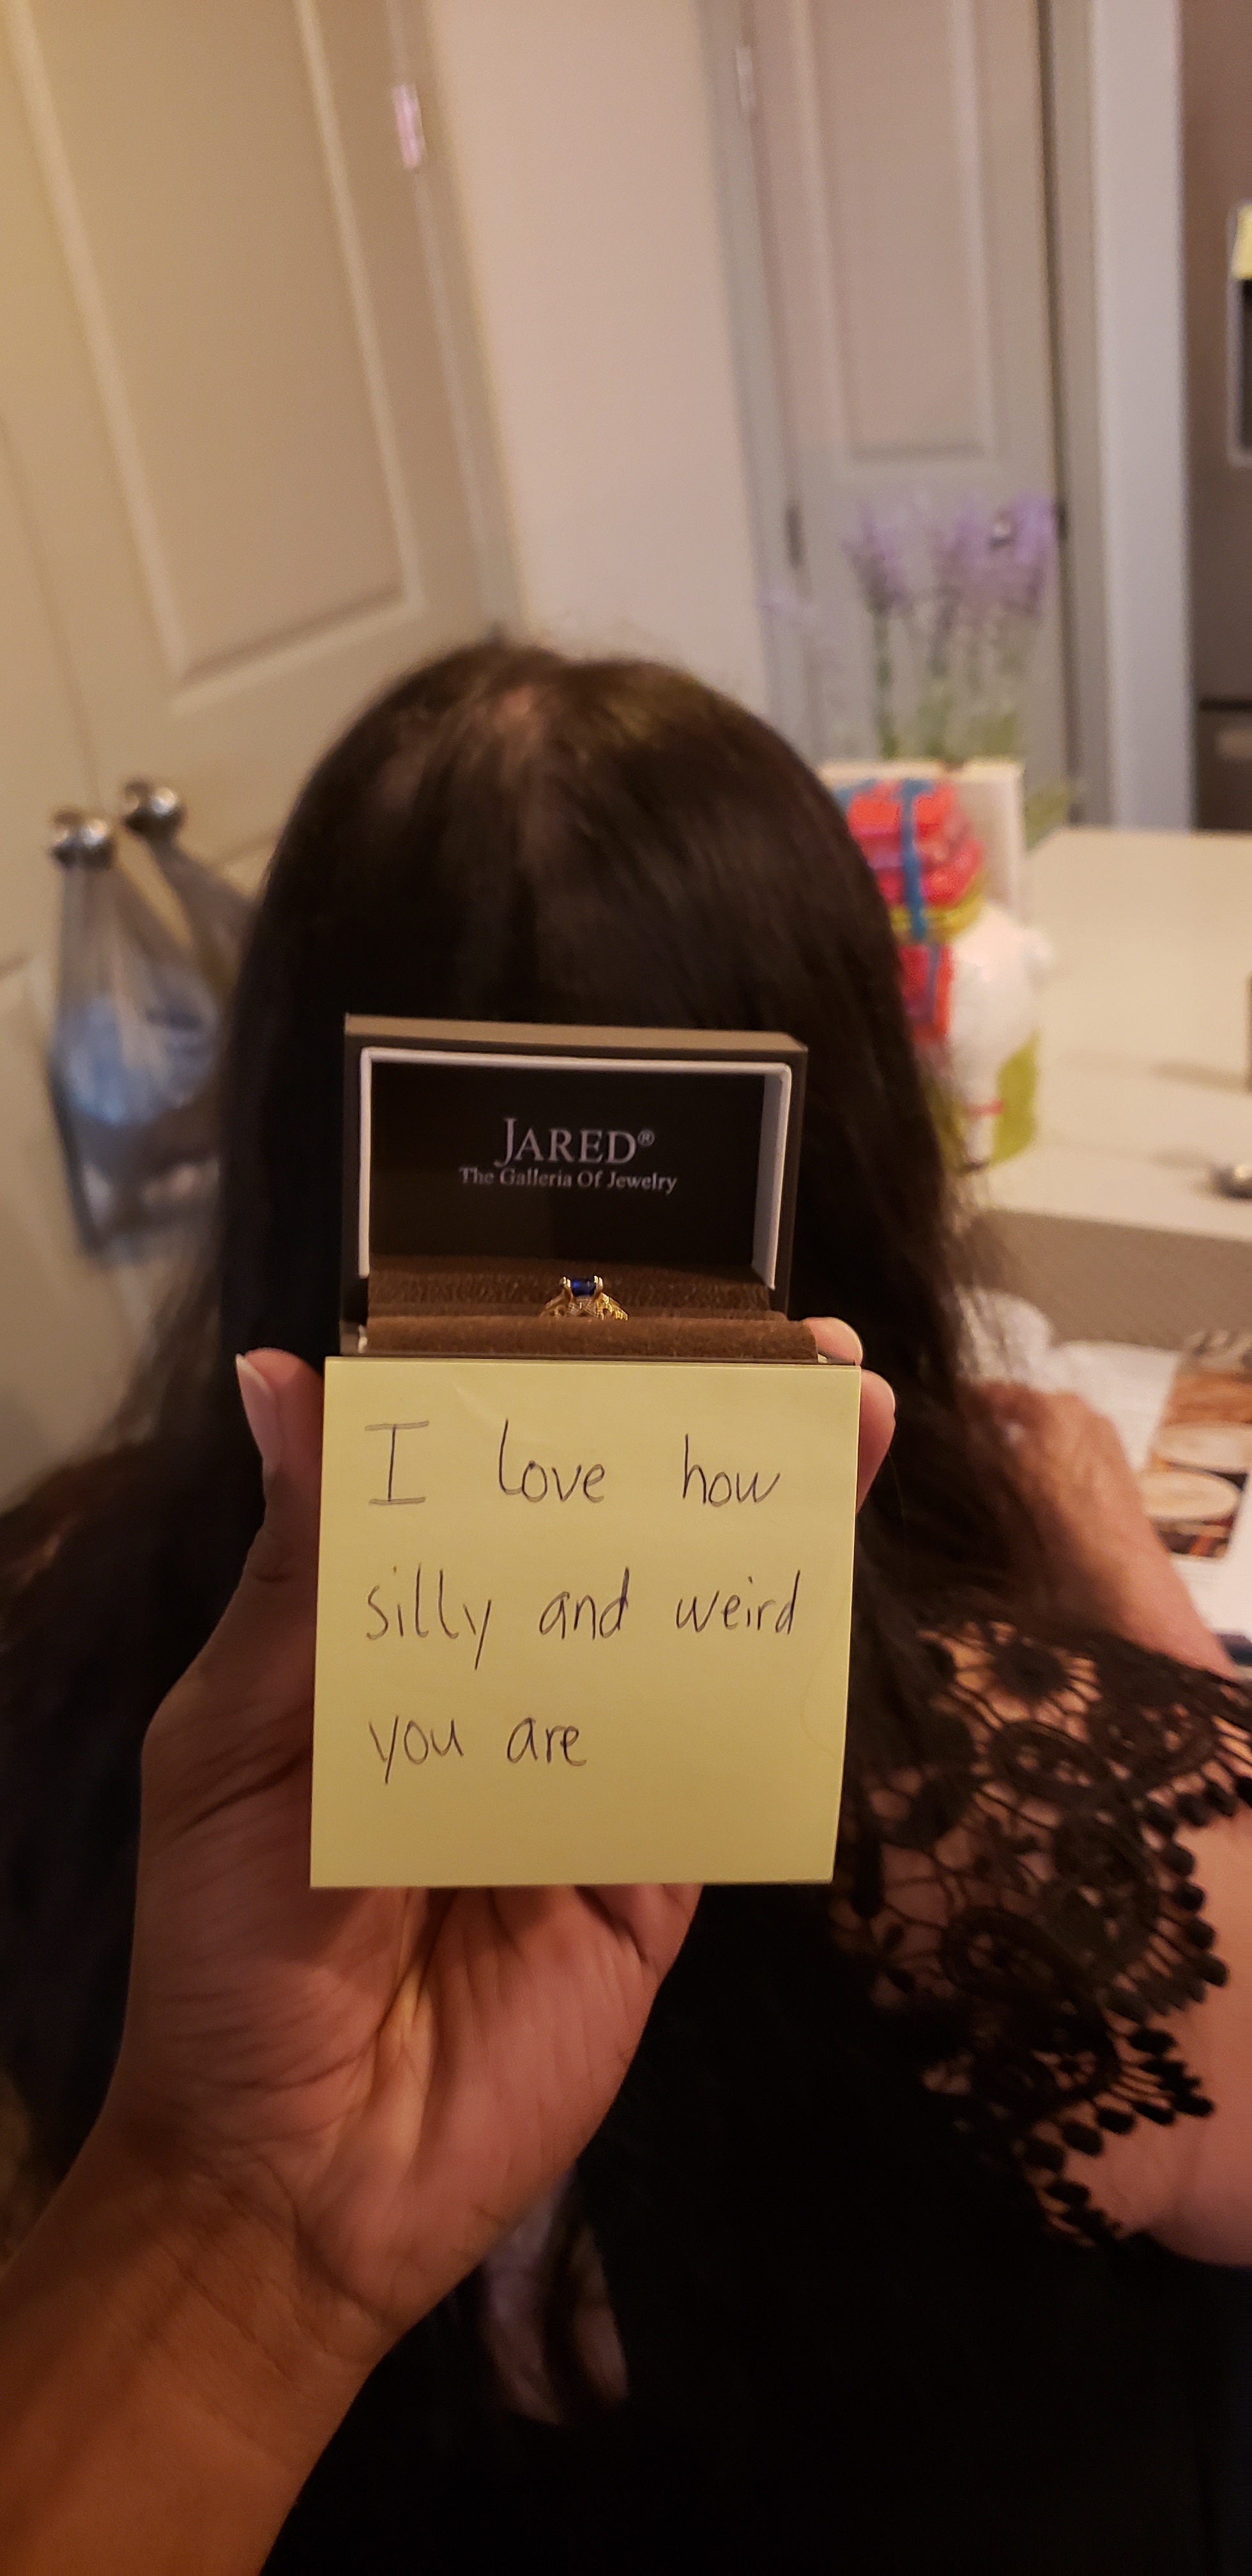 JARED®
The Galleria Of Jewelry
I love how
silly and weird
you are